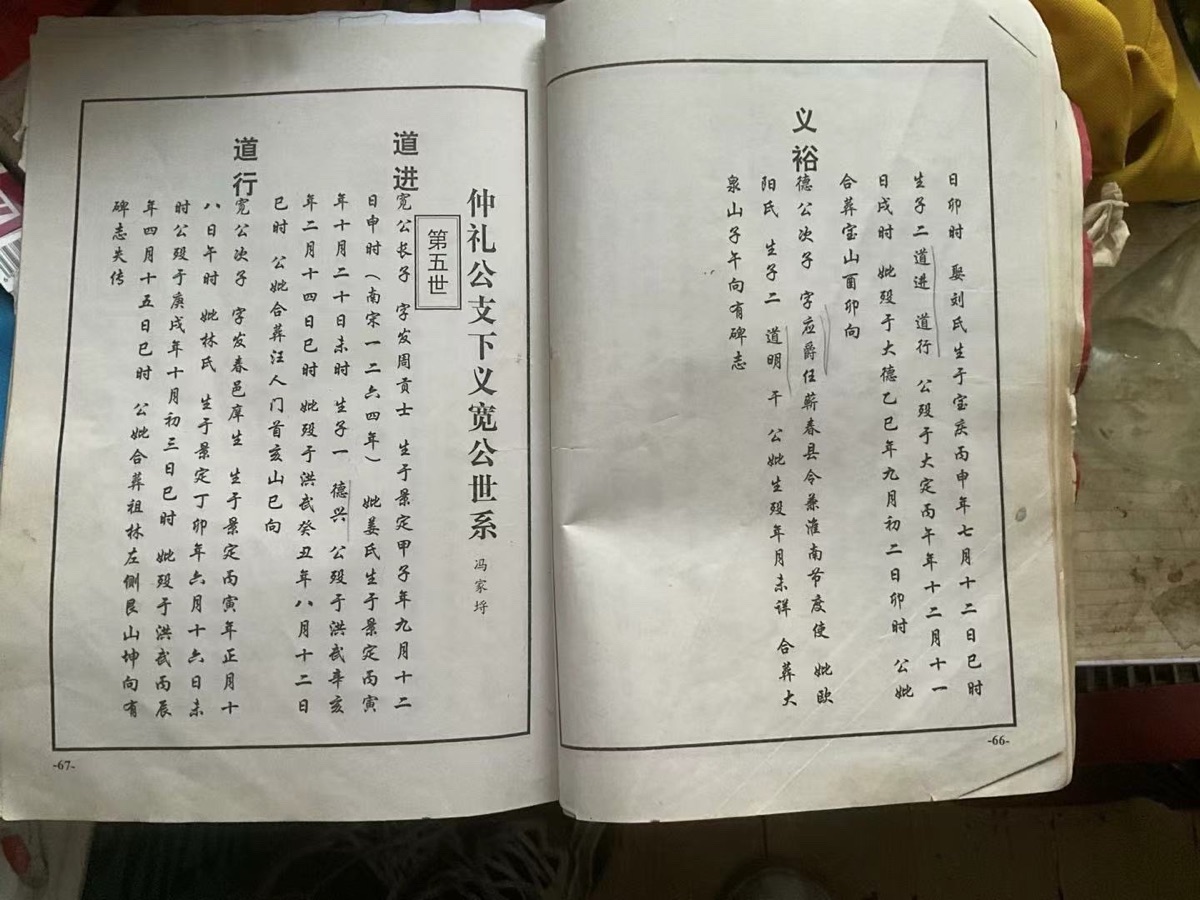 日卯时 娶刘氏生于宝庆丙申年七月十二日巳时
生子二 道进 道行 公殁于大定丙午年十二月十一
日戌时 妣殁于大德乙巳年九月初二日卯时 公妣
合葬宝山酉卯向
义裕
德公次子 字应爵任蕲春县令兼淮南节度使 妣欧
阳氏 生子二 道明 干 公妣生殁年月未详 合葬大
泉山子午向有碑志
-66-
仲礼公支下义宽公世系 冯家埒
第五世
道进
宽公长子 字发周贡士 生于景定甲子年九月十二
日申时（南宋一二六四年） 妣姜氏生于景定丙寅
年十月二十日未时 生子一 德兴 公殁于洪武辛亥
年二月十四日巳时 妣殁于洪武癸丑年八月十二日
巳时 公妣合葬汪人门首亥山巳向
道行
宽公次子 字发春邑庠生 生于景定丙寅年正月十
八日午时 妣林氏 生于景定丁卯年六月十六日未
时公殁于庚戌年十月初三日巳时 妣殁于洪武丙辰
年四月十五日巳时 公妣合葬祖林左侧艮山坤向有
碑志失传
-67-